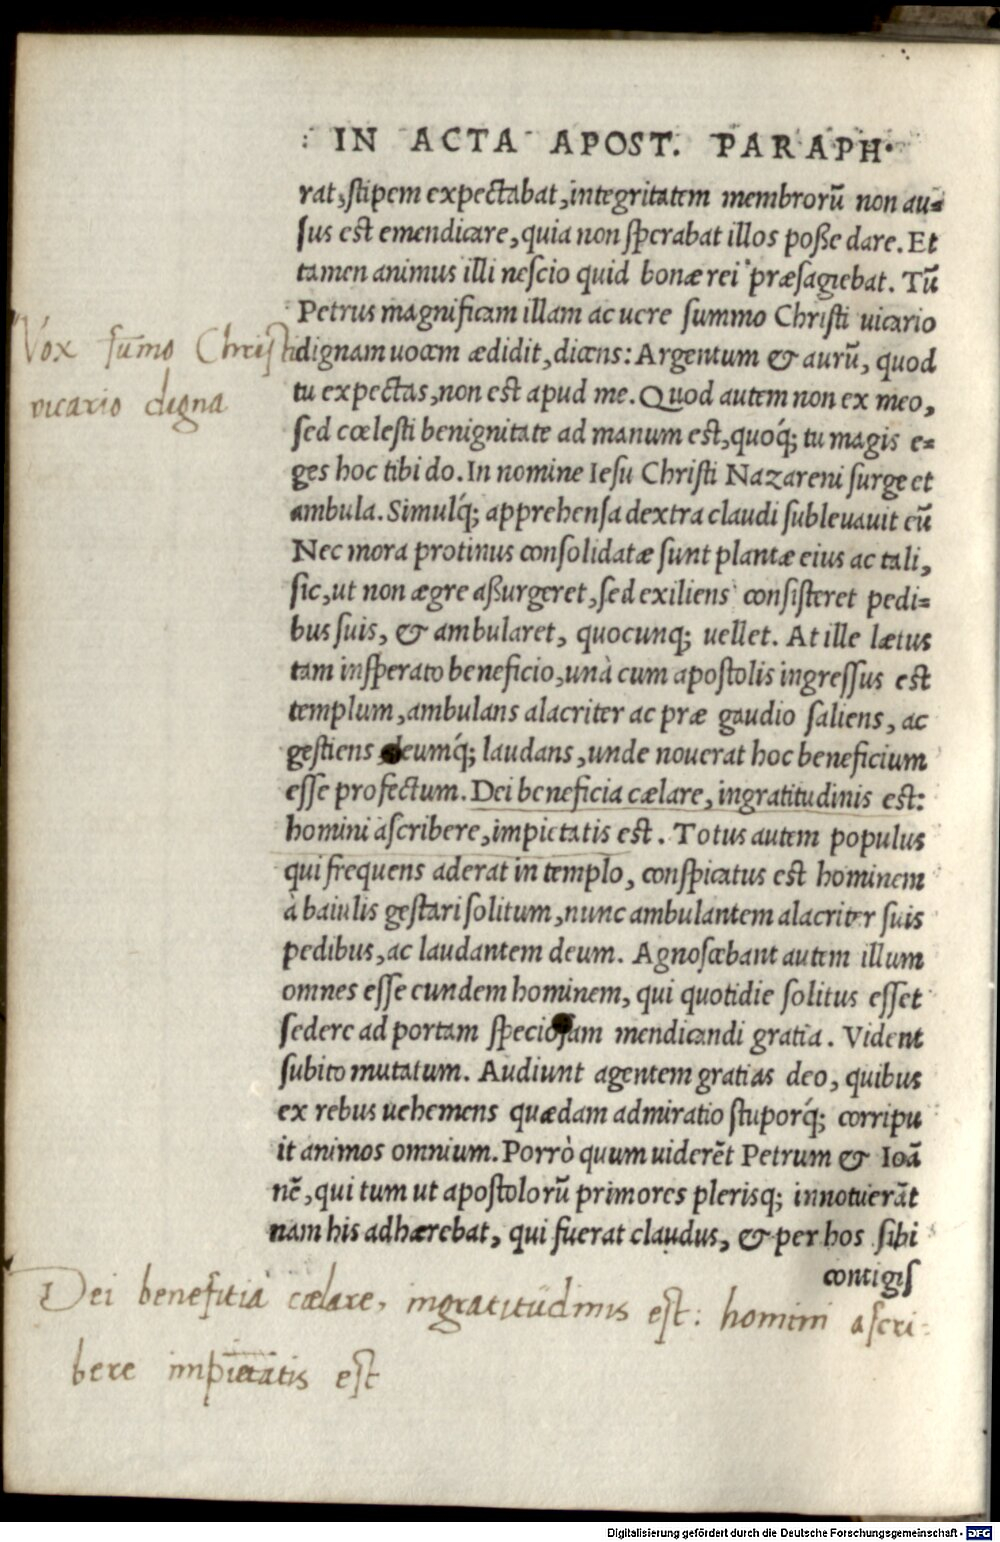 IN ACTA APOST. PARAPH.
rat, stipem expectabat, integritatem membrorũ non au=
sus est emendicare, quia non sperabat illos poße dare. Et
tamen animus illi nescio quid bonæ rei præsagiebat. Tũ
Petrus magnificam illam ac uere summo Christi uicario
Vox sum̃o Christi
dignam uocem ædidit, dicens: Argentum & aurũ, quod
vicario digna
tu expectas, non est apud me. Quod autem non ex meo,
sed cœlesti benignitate ad manum est, quoq́; tu magis e=
ges hoc tibi do. In nomine Iesu Christi Nazareni surge et
ambula. Simulq́; apprehensa dextra claudi subleuauit eũ
Nec mora protinus consolidatæ sunt plantæ eius ac tali,
sic, ut non ægre aßurgeret, sed exiliens consisteret pedi=
bus suis, & ambularet, quocunq; uellet. At ille lætus
tam insperato beneficio, unà cum apostolis ingressus est
templum, ambulans alacriter ac præ gaudio saliens, ac
gestiens, deumq́; laudans, unde nouerat hoc beneficium
esse profectum. Dei beneficia cælare, ingratitudinis est:
homini ascribere, impietatis est. Totus autem populus
qui frequens aderat in templo, conspicatus est hominem
à baiulis gestari solitum, nunc ambulantem alacriter suis
pedibus, ac laudantem deum. Agnoscebant autem illum
omnes esse eundem hominem, qui quotidie solitus esset
sedere ad portam speciosam mendicandi gratia. Vident
subito mutatum. Audiunt agentem gratias deo, quibus
ex rebus uehemens quædam admiratio stuporq́; corripu
it animos omnium. Porrò quum uiderẽt Petrum & Ioã
nẽ, qui tum ut apostolorũ primores plerisq; innotuerãt
nam his adhærebat, qui fuerat claudus, & per hos sibi
contigis
Dei benefitia cælare, ingratitudinis est: homini ascri:
bere impietatis est
Digitalisierung gefördert durch die Deutsche Forschungsgemeinschaft - DFG